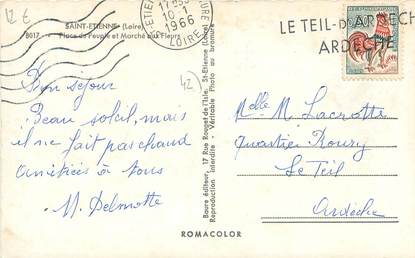 12 €
SAINT-ETIENNE (Loire)
8017. - Place du Peuple et Marché aux Fleurs
10-1
1966
LOIRE
LE TEIL-D'ARDECH
ARDECHE
42
Bon sejour
Beau soleil, mais
il ne fait pas chaud
amitiées à tous
M. Delmotte
Boure éditeur, 17 Rue Rouget de l'Isle, St-Etienne (Loire)
Reproduction interdite - Véritable Photo au bromure
Melle M. Lacrotte
Quartier Roury
Le Teil
Ardèche
ROMACOLOR